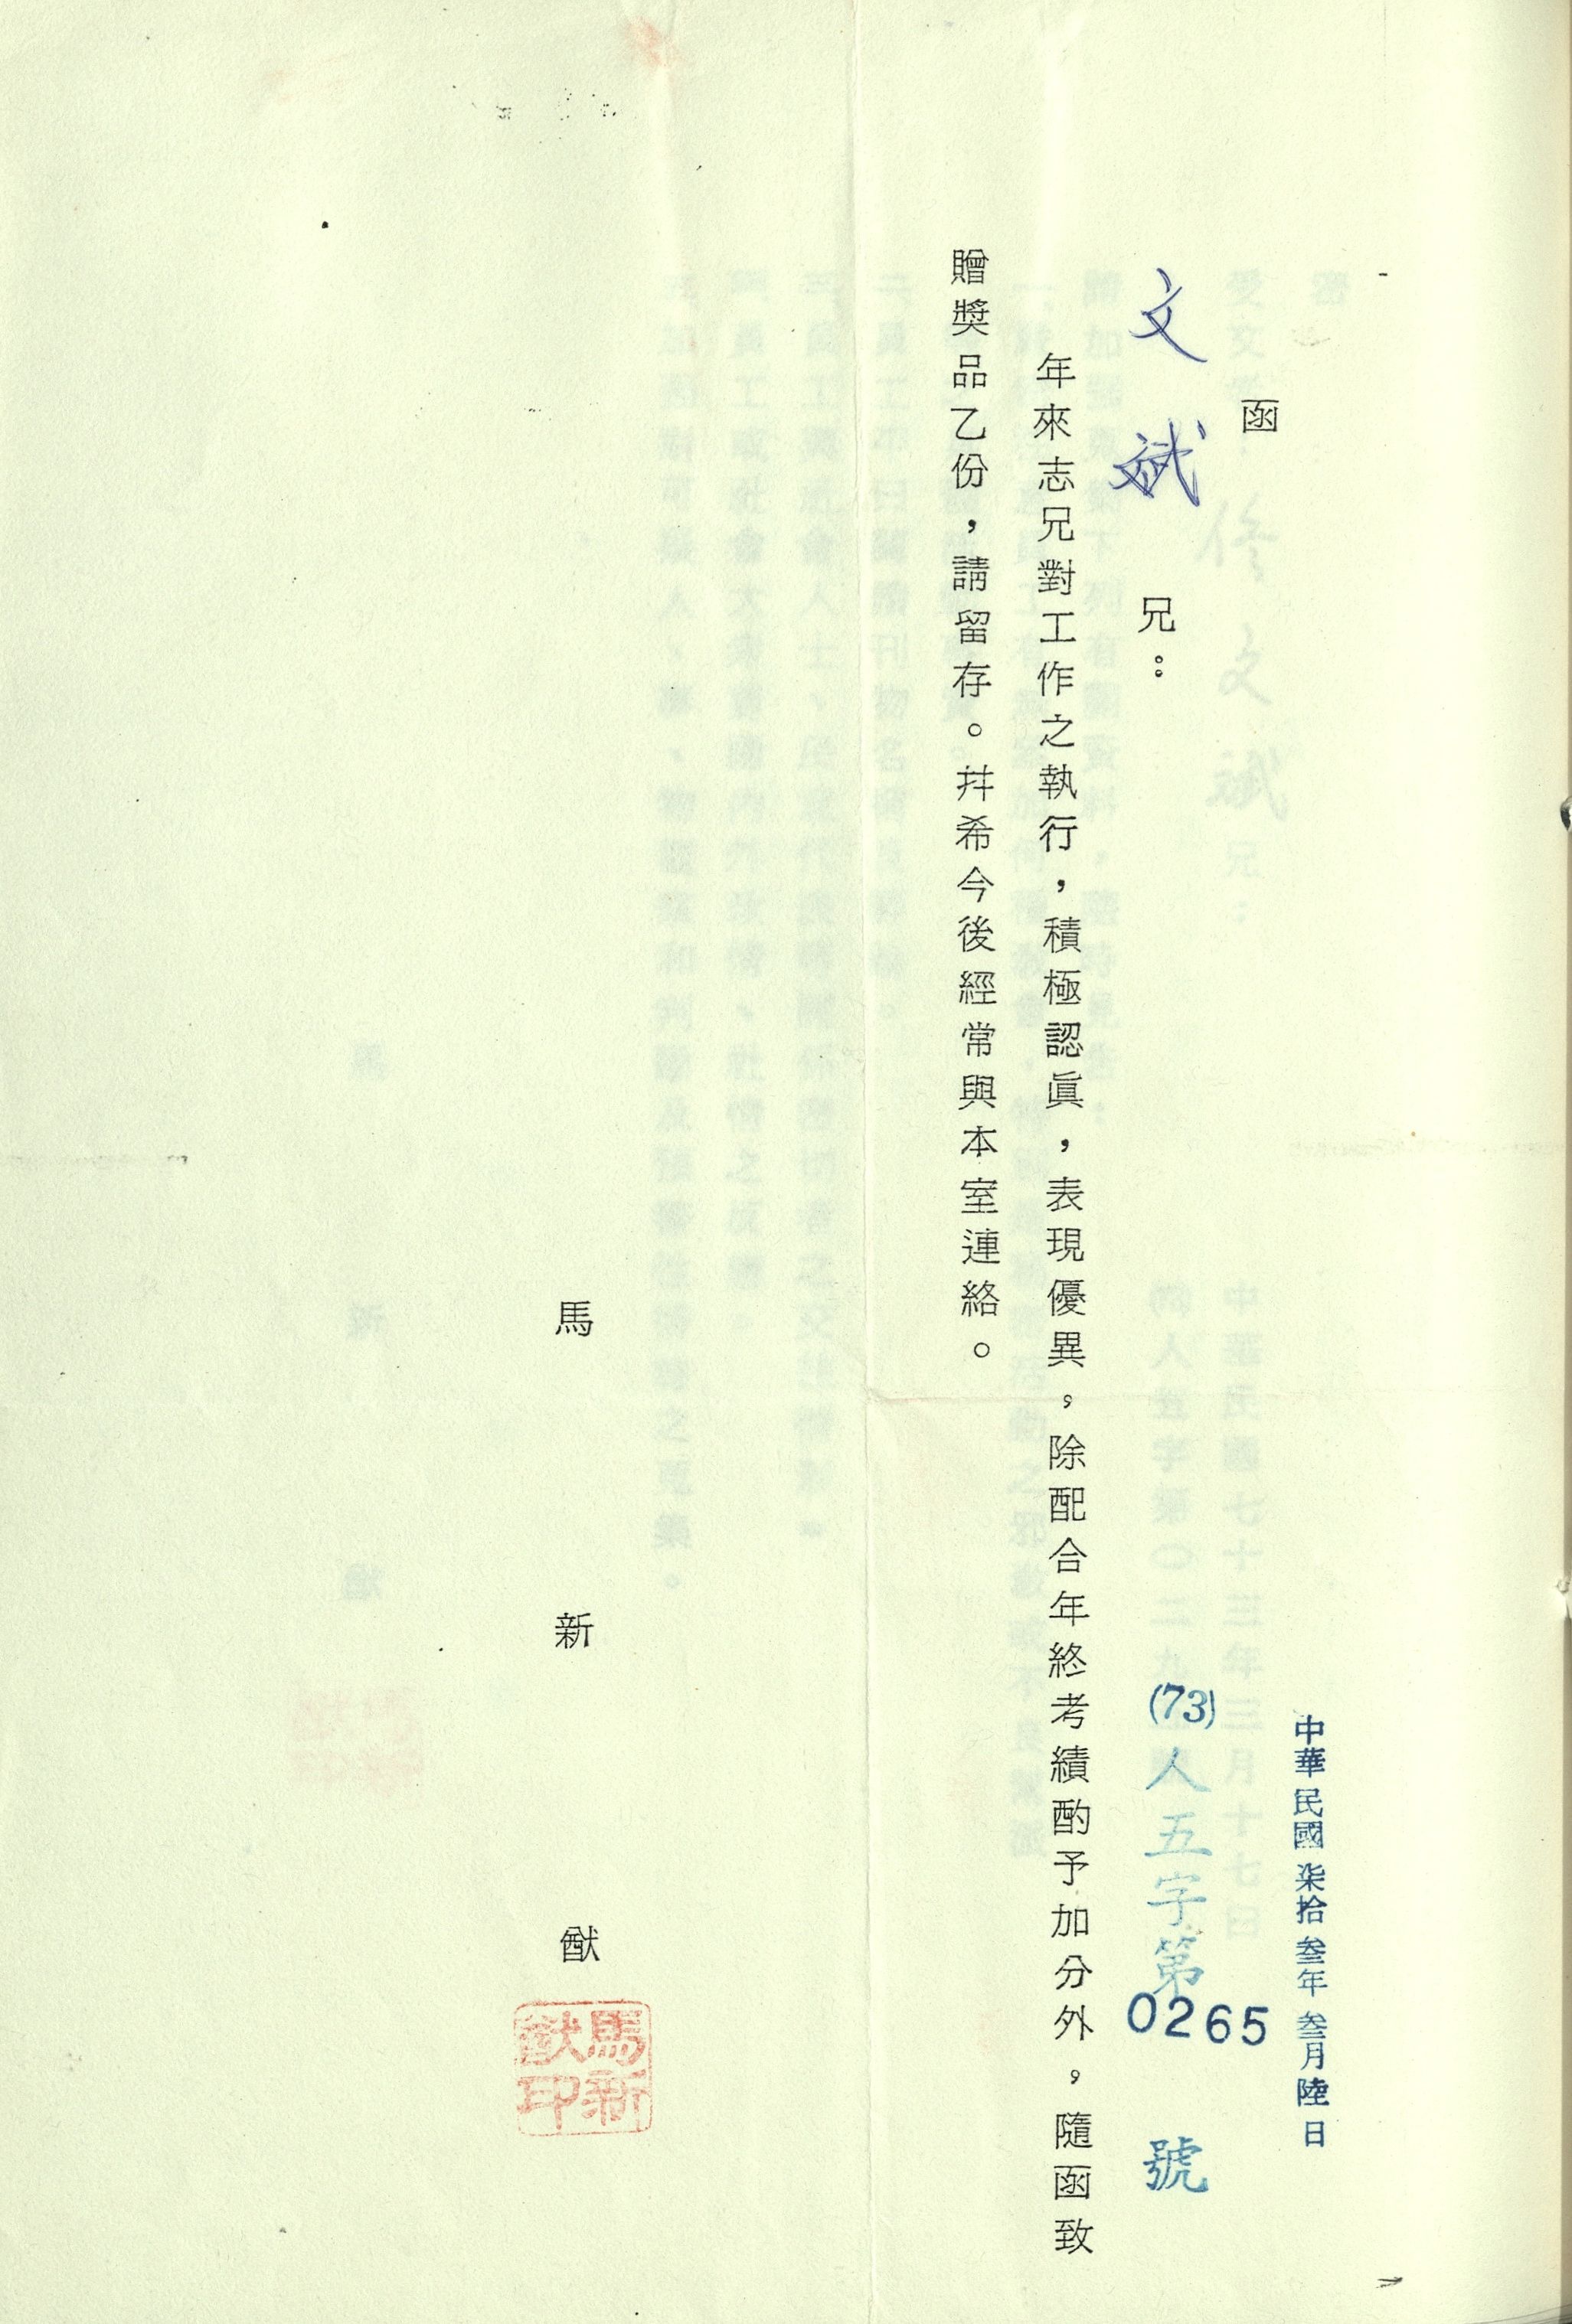 中華民國柒拾叁年叁月陸日
函
(73)人五字第0265號
文斌兄：
年來志兄對工作之執行，積極認眞，表現優異。除配合年終考績酌予加分外。隨函致
贈獎品乙份，請留存。幷希今後經常與本室連絡。
馬新猷
馬新猷印